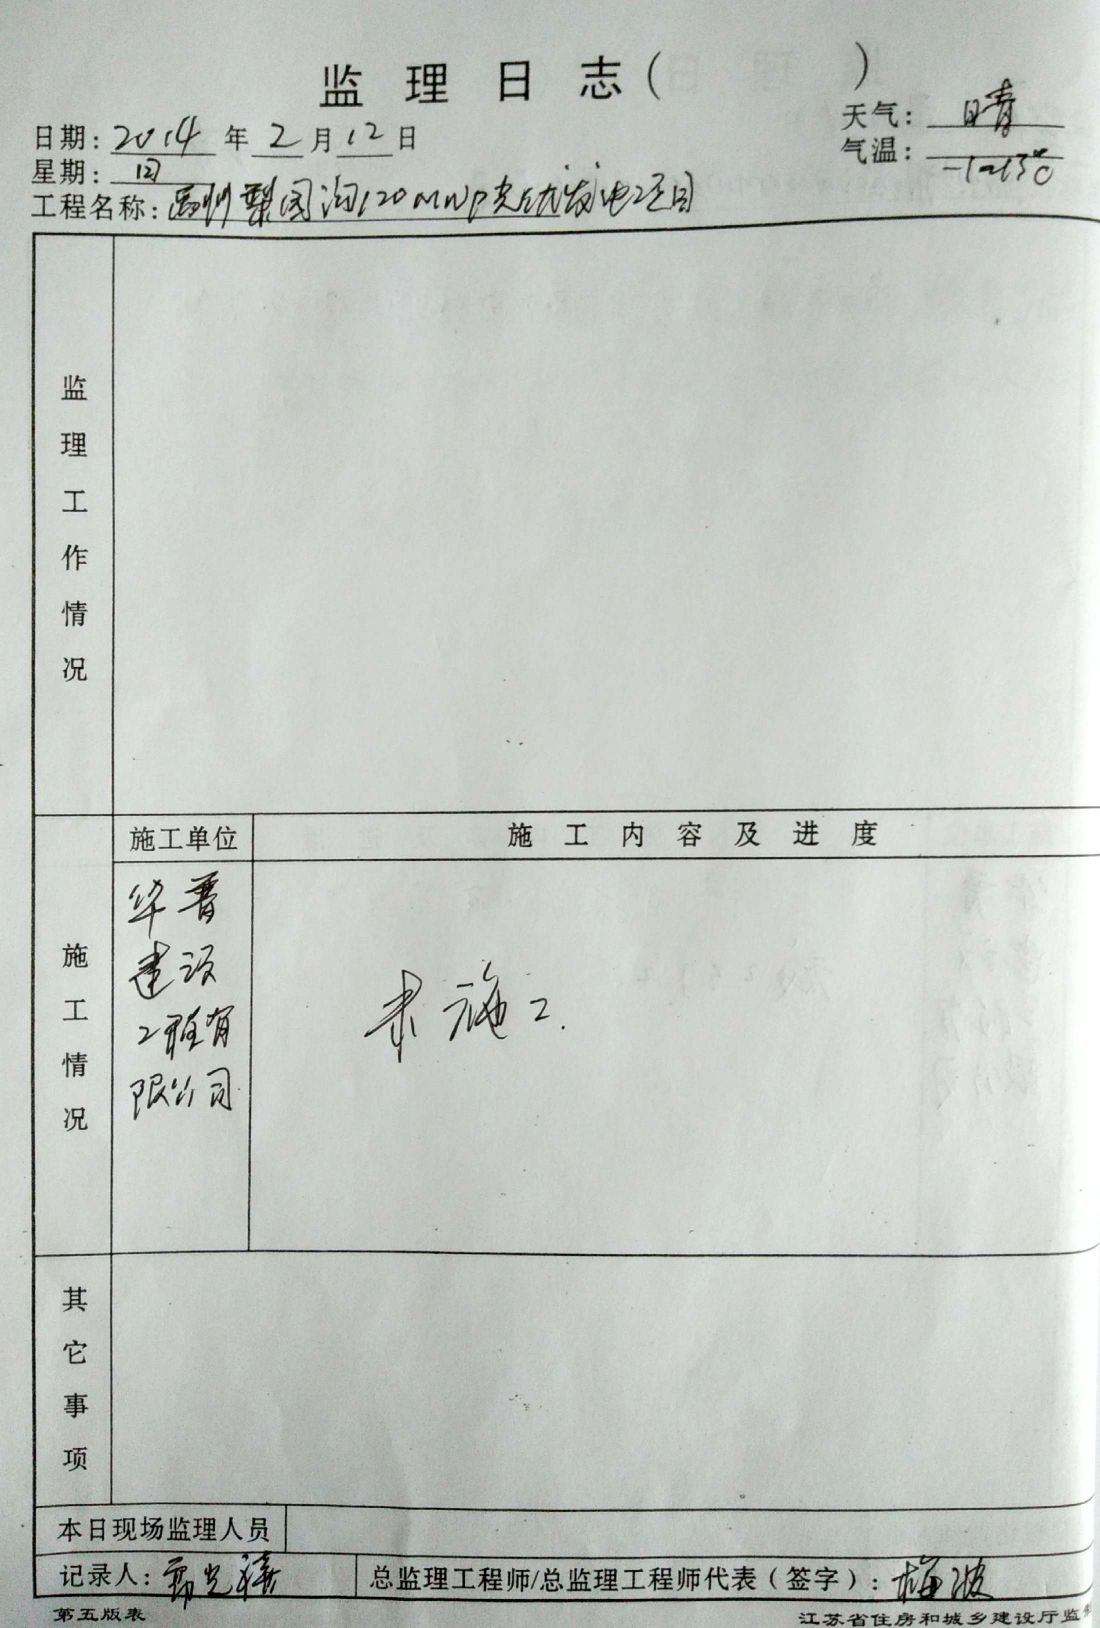 监 理 日 志（ ）
天气： 晴
日期：2014 年 2 月 12 日
气温：
星期：
工程名称： 120MWp光伏发电工程项目
监理工作情况
施工单位
施 工 内 容 及 进 度
施工情况
华普
建设
工程有
限公司
未施工.
其它事项
本日现场监理人员
记录人：
总监理工程师/总监理工程师代表（签字）：梅波
第五版表
江苏省住房和城乡建设厅监